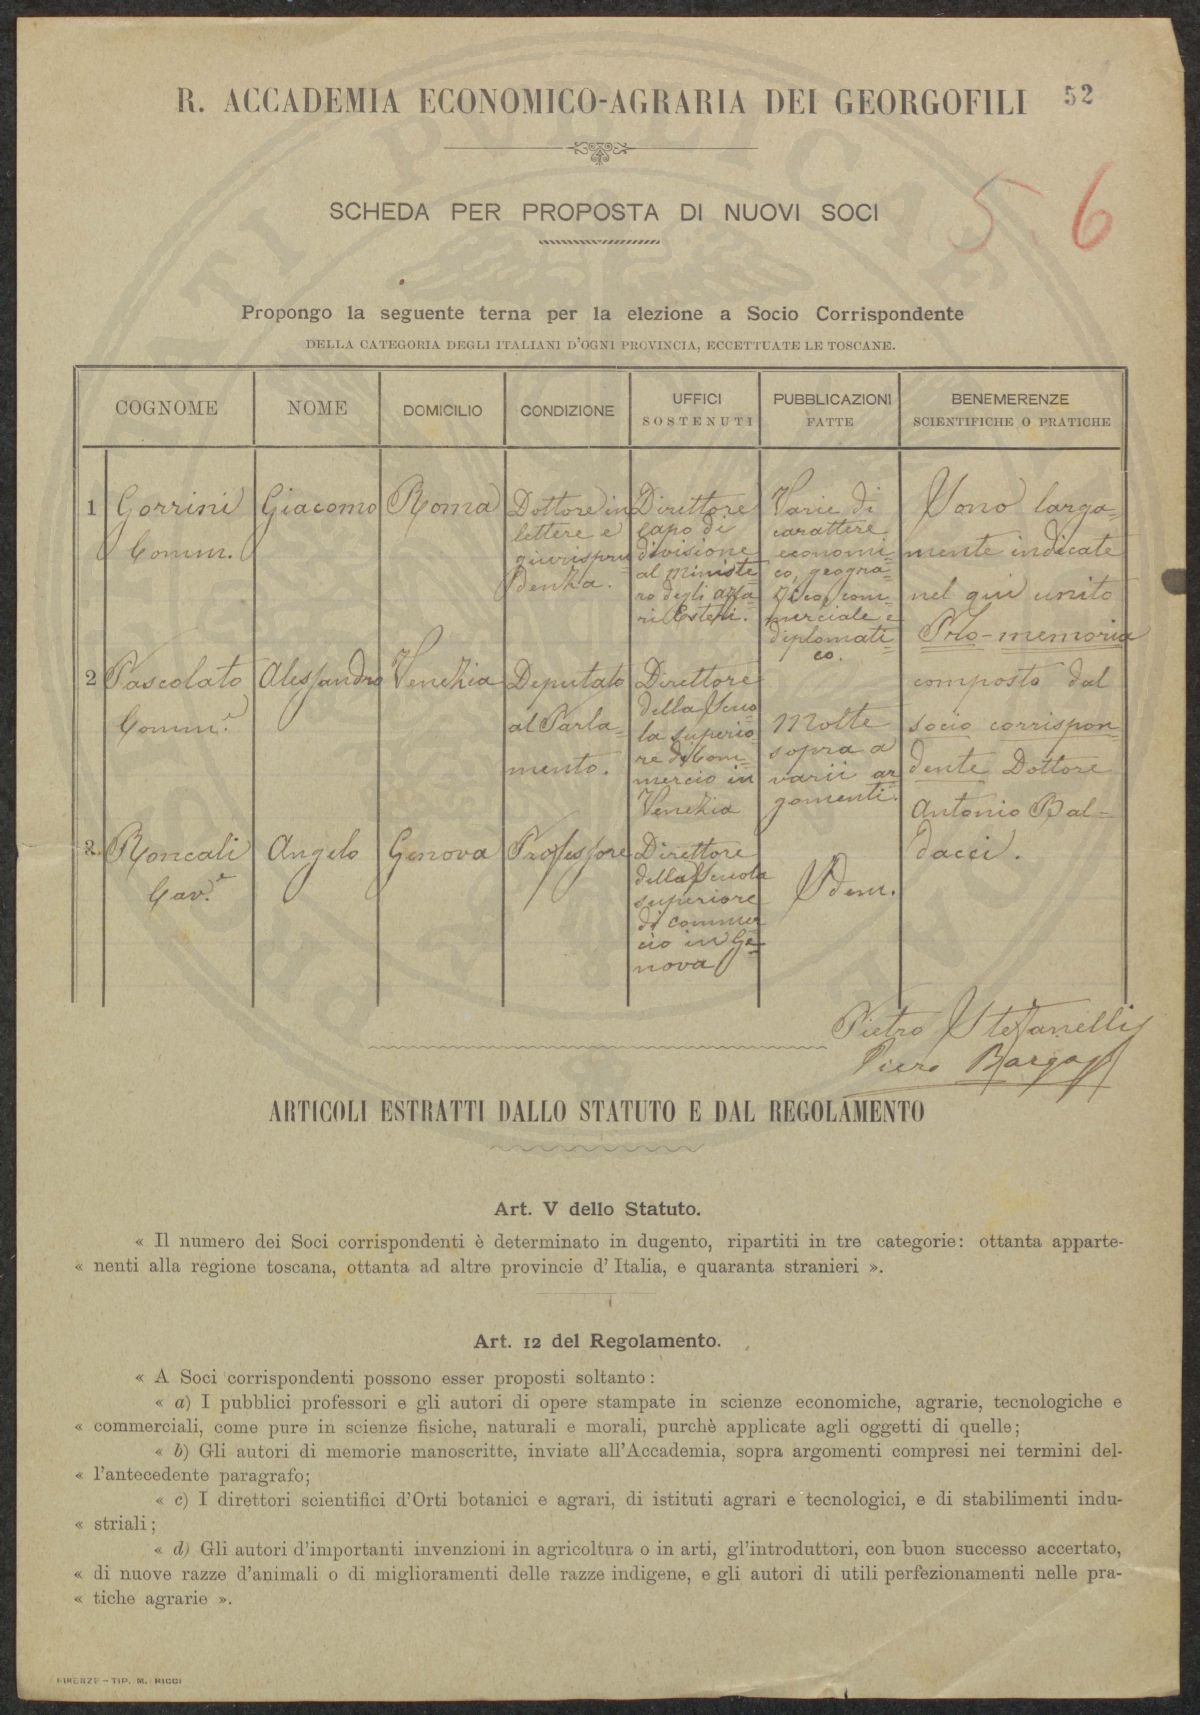 R. ACCADEMIA ECONOMICO-AGRARIA DEI GEORGOFILI
52
5 6
SCHEDA PER PROPOSTA DI NUOVI SOCI
Propongo la seguente terna per la elezione a Socio Corrispondente
DELLA CATEGORIA DEGLI ITALIANI D'OGNI PROVINCIA, ECCETTUATE LE TOSCANE.
COGNOME
NOME
DOMICILIO
CONDIZIONE
UFFICI
SOSTENUTI
PUBBLICAZIONI
FATTE
BENEMERENZE
SCIENTIFICHE O PRATICHE
1
Gorrini
Comm.
Giacomo
Roma
Dottore in
lettere e
giurispru-
denza.
Direttore
capo di
divisione
al Ministe-
ro degli affa-
ri Esteri.
Varie di
carattere
economi-
co, geogra-
fico, com-
merciale e
diplomati-
co.
Sono larga-
mente indicate
nel qui unito
Pro-memoria
composto dal
socio corrispon-
dente Dottore
Antonio Bal-
dacci.
2
Pascolato
Comm.r
Alessandro
Venezia
Deputato
al Parla-
mento.
Direttore
della Scuo-
la superio-
re di Com-
mercio in
Venezia
Molte
sopra a
varii ar-
gomenti.
3.
Roncali
Cav.r
Angelo
Genova
Professore
Direttore
della Scuola
superiore
di commer-
cio in Ge-
nova
Idem.
Pietro Stefanelli
Piero Bargagli
ARTICOLI ESTRATTI DALLO STATUTO E DAL REGOLAMENTO
Art. V dello Statuto.
« Il numero dei Soci corrispondenti è determinato in dugento, ripartiti in tre categorie: ottanta apparte-
« nenti alla regione toscana, ottanta ad altre provincie d' Italia, e quaranta stranieri ».
Art. 12 del Regolamento.
« A Soci corrispondenti possono esser proposti soltanto:
« a) I pubblici professori e gli autori di opere stampate in scienze economiche, agrarie, tecnologiche e
« commerciali, come pure in scienze fisiche, naturali e morali, purchè applicate agli oggetti di quelle;
« b) Gli autori di memorie manoscritte, inviate all'Accademia, sopra argomenti compresi nei termini del-
« l'antecedente paragrafo;
« c) I direttori scientifici d'Orti botanici e agrari, di istituti agrari e tecnologici, e di stabilimenti indu-
« striali;
« d) Gli autori d'importanti invenzioni in agricoltura o in arti, gl'introduttori, con buon successo accertato,
« di nuove razze d'animali o di miglioramenti delle razze indigene, e gli autori di utili perfezionamenti nelle pra-
« tiche agrarie ».
FIRENZE - TIP. M. RICCI